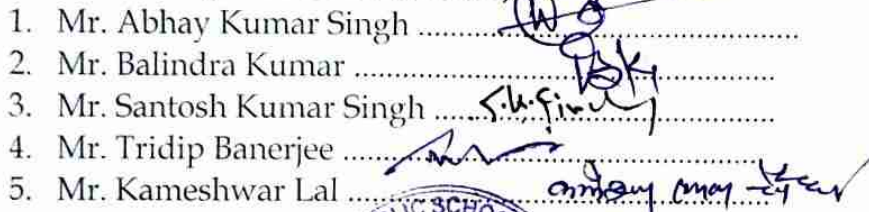 1. Mr. Abhay Kumar Singh ..........
2. Mr. Balindra Kumar .......... BK
3. Mr. Santosh Kumar Singh .......... S.K.Singh
4. Mr. Tridip Banerjee ..........
5. Mr. Kameshwar Lal ..........
IC SCHO